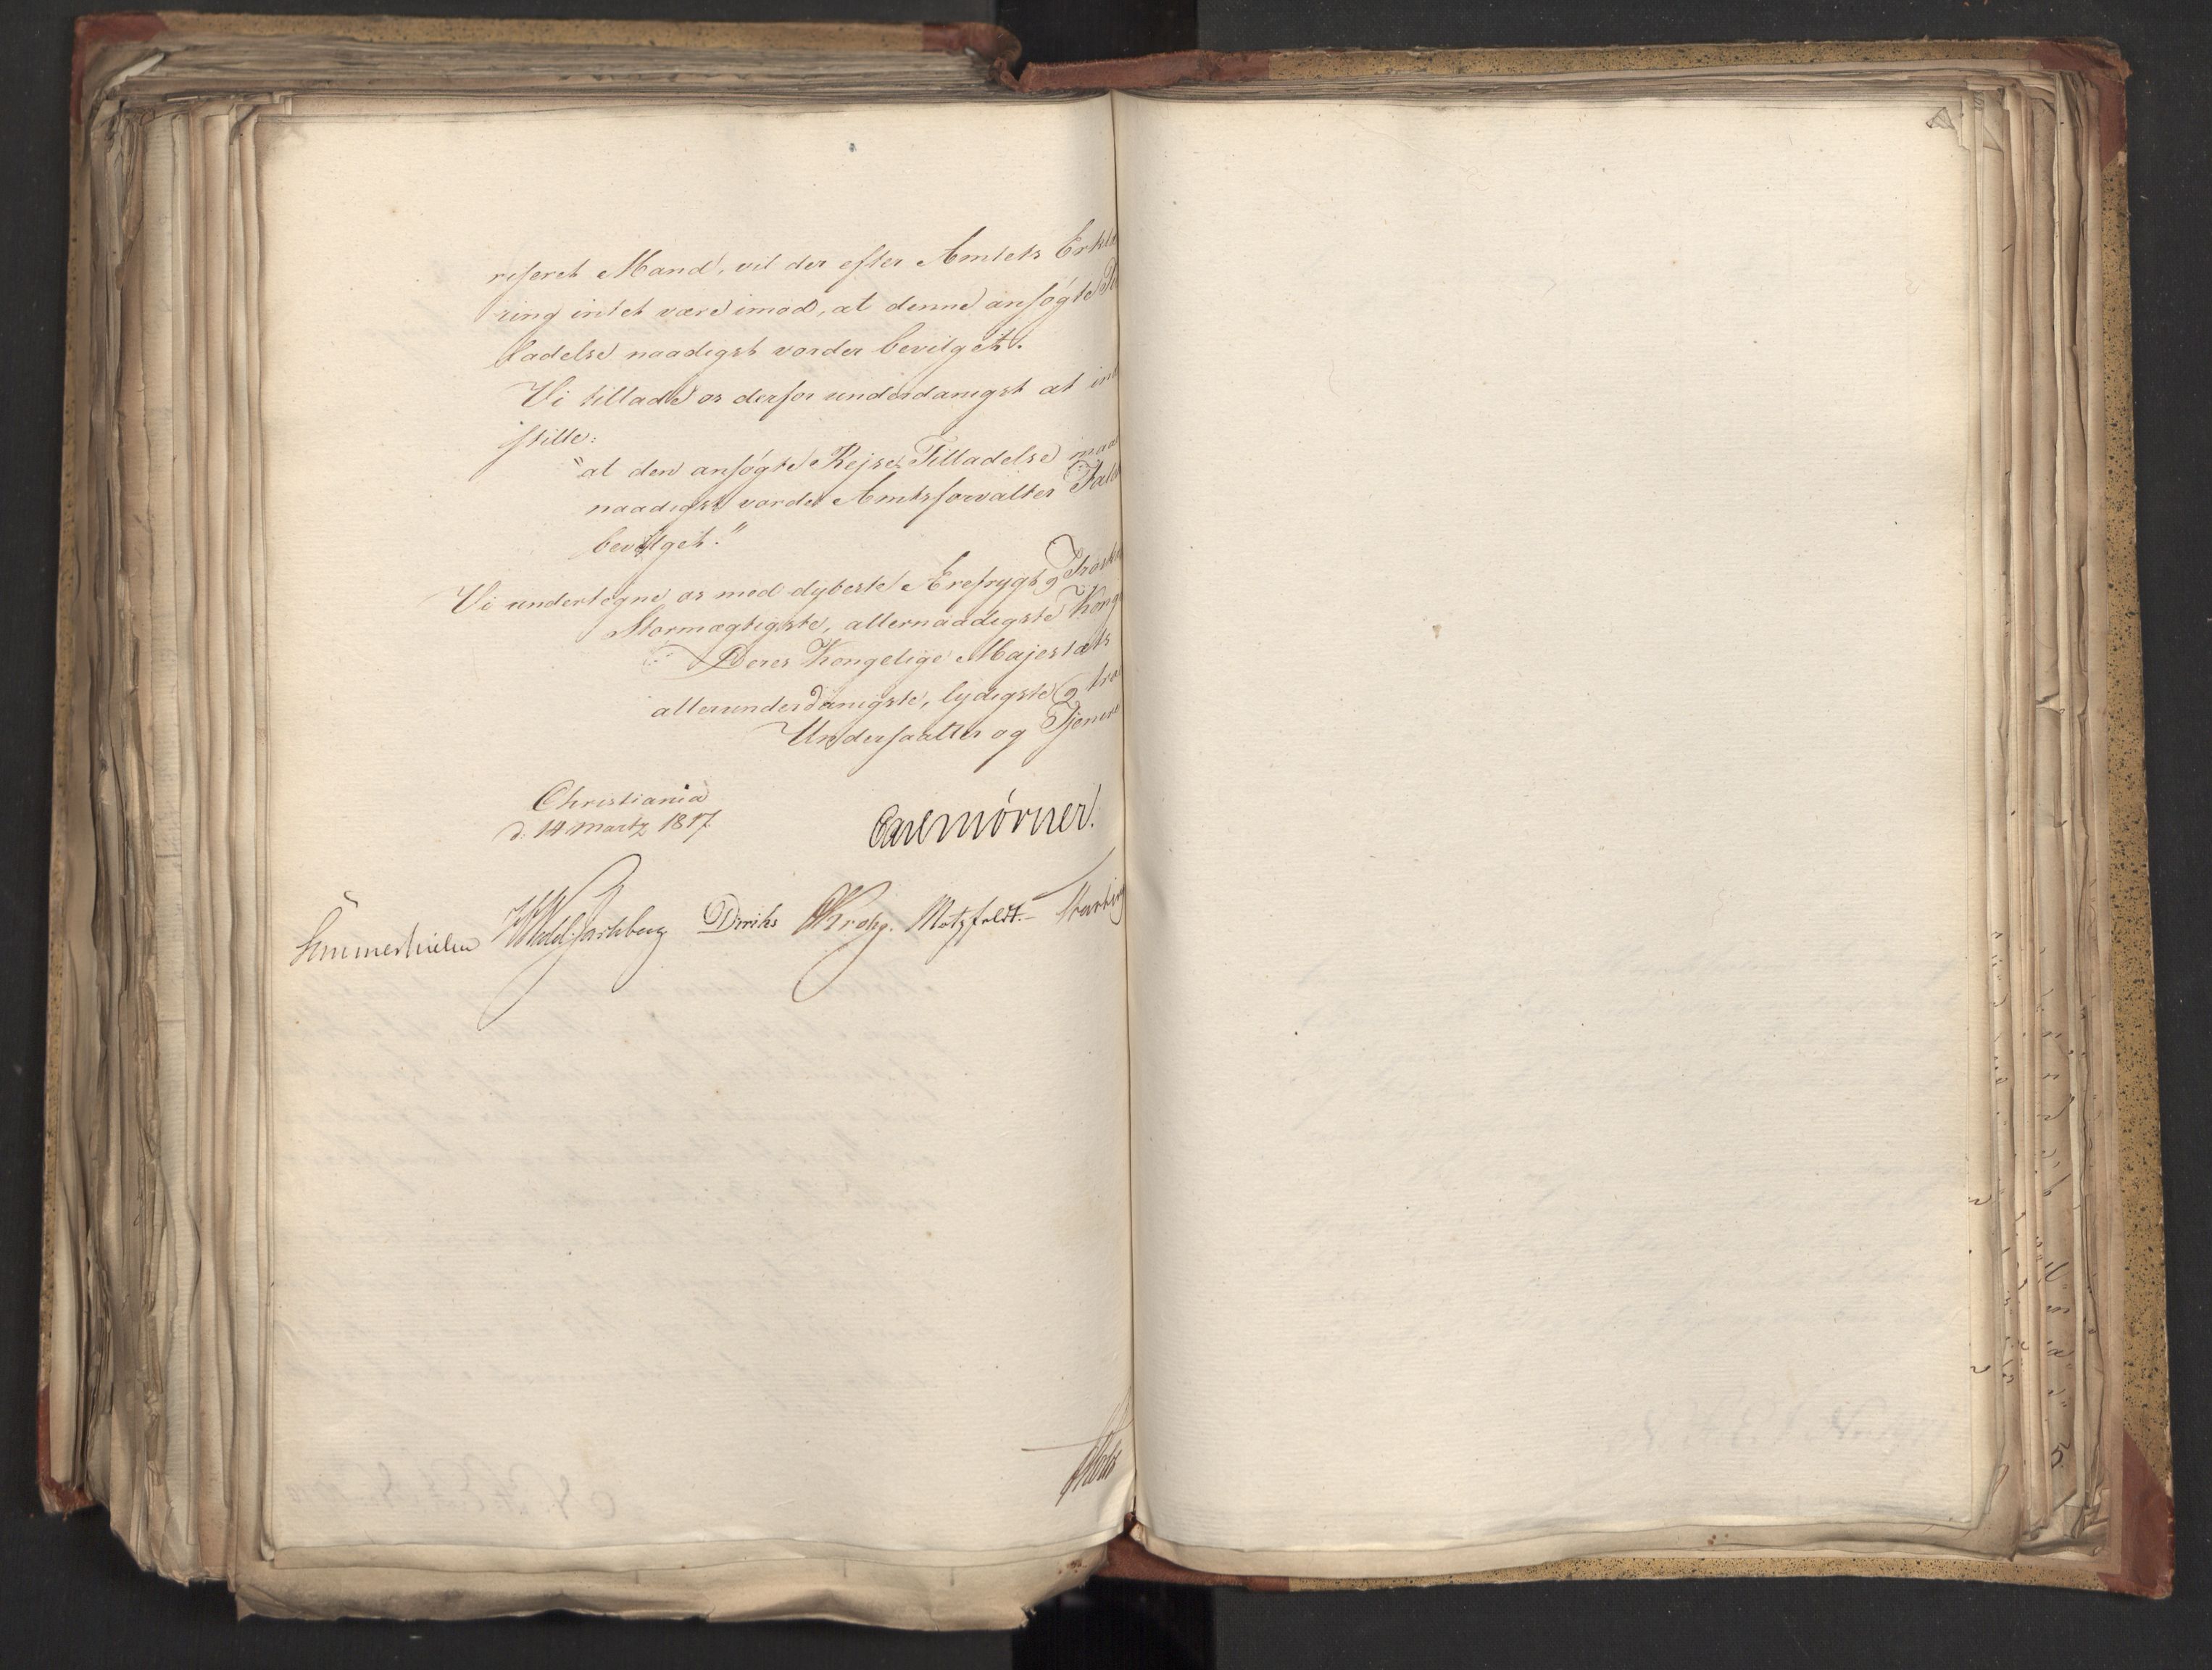 riseret Mand, vil der efter Amtets Erklæ
ring intet være imod, at denne ansøgte
ladelse naadigst vorder bevilget.
Vi tillade os derfor underdanigst at ind
stille:
"at den ansøgte Rejse-Tilladelse maa
naadigst vorde Amtsforvalter
bevilget."
Vi undertegne os med dybeste Ærefrygt og Troska
Stormægtigste, allernaadigste Konge
Deres Kongelige Majestæts
allerunderdanigste, lydigste og tro
Undersaatter og Tjenere
Christiania
d: 14 Martz 1817.
Carl Mörner.
Sommerhielm Wedel Jarlsberg Diriks Krohg. Motzfeldt.-
Holst